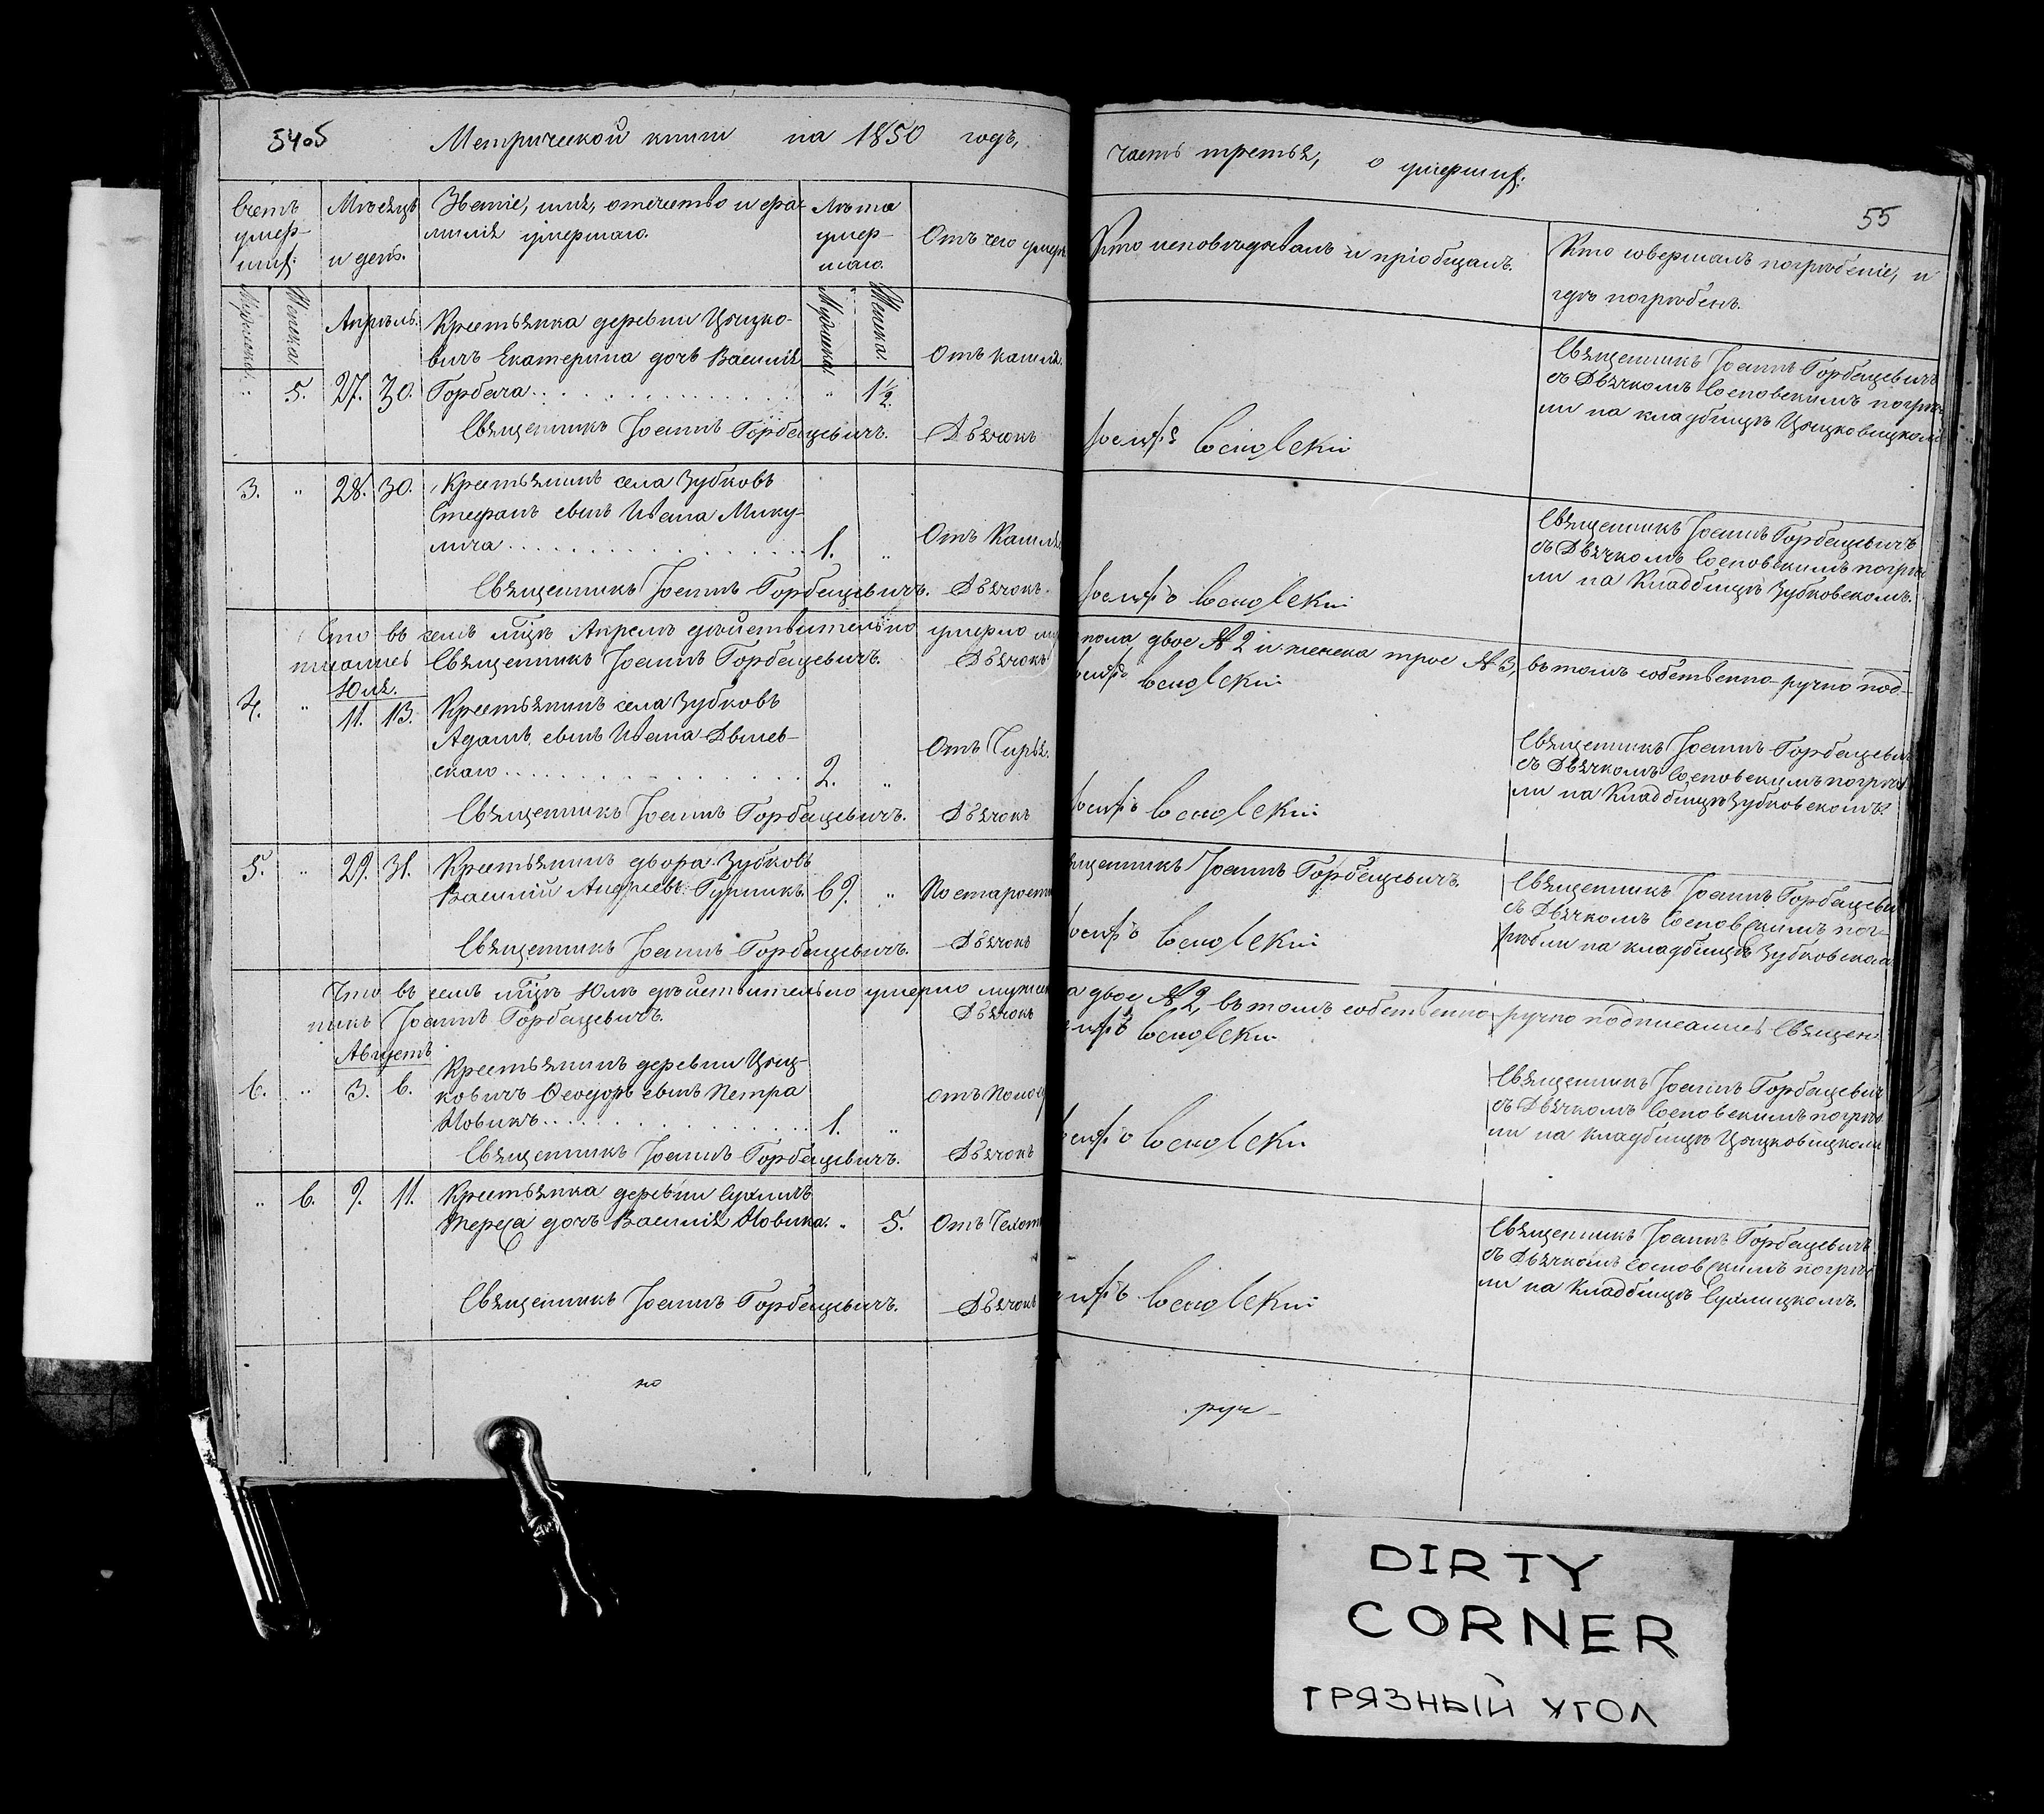 54об
Метрической книги на 1850 годъ,
часть третья, о умершихъ.
55
Счетъ умер-
шихъ.
Мѣсяцъ
и день.
Званіе, имя, отечество и фа-
милія умершаго.
Лѣта
умер-
шаго.
Отъ чего умеръ
Кто исповѣдывалъ и пріобщалъ.
Кто совершалъ погребеніе, и
гдѣ погребенъ.
Мужеска.
Женска.
Мужеска.
Женска.
Апрѣль.
Крестьянка деревни Цяцко-
вичъ Екатерина дочь Василія
Горбача
.. 5. 27. 30. .. 1½.
Отъ кашля.
Священникъ Іоаннъ Горбацевичъ.
Дьячокъ Іосифъ Сосновскій
Священникъ Іоаннъ Горбацевичъ
съ Дьячкомъ Сосновскимъ погреб-
ли на кладбищѣ Цяцковицкомъ
3. .. 28. 30. Крестьянинъ села Зубковъ
Стефанъ сынъ Ивана Мику-
лича 1. ..
Отъ Кашля
Священникъ Іоаннъ Горбацевичъ.
Дьячокъ Іосифъ Сосновскій
Священникъ Іоаннъ Горбацевичъ
съ Дьячкомъ Сосновскимъ погреб
ли на Кладбищѣ Зубковскомъ.
Что въ семъ мцѣ Апрелѣ дѣйствительно умерло муж пола двое № 2 и женска трое № 3, въ томъ собственно-ручно под-
писались Священникъ Іоаннъ Горбацевичъ. Дьячокъ Іосифъ Сосновскій
Юля.
4. .. 11. 13. Крестьянинъ села Зубковъ
Адамъ сынъ Ивана
скаго 2. ..
Отъ Чирья.
Священникъ Іоаннъ Горбацевичъ.
Дьячокъ Іосифъ Сосновскій
Священникъ Іоаннъ Горбацевичъ
съ Дьячкомъ Сосновскимъ погреб
ли на Кладбищѣ Зубковскомъ.
5. .. 29. 31. Крестьянинъ двора Зубковъ
Василій Андреевъ 69. ..
По старости
Священникъ Іоаннъ Горбацевичъ.
Священникъ Іоаннъ Горбацевичъ.
Дьячокъ Іосифъ Сосновскій
Священникъ Іоаннъ Горбацеви
съ Дьячкомъ Сосновскимъ пог-
ребли на кладбищѣ Зубковском
Что въ семъ мцѣ Юлѣ дѣйствительно умерло мужеска двое № 2, въ томъ собственно-ручно подписались Священ-
никъ Іоаннъ Горбацевичъ. Дьячокъ Іосифъ Сосновскій
Августъ
6. .. 3. 6. Крестьянинъ деревни Цяц-
ковичъ Ѳеодоръ сынъ Петра
Новикъ 1. ..
отъ Поносу
Священникъ Іоаннъ Горбацевичъ.
Дьячокъ Іосифъ Сосновскій
Священникъ Іоаннъ Горбацевич
съ Дьячкомъ Сосновскимъ погреб
ли на кладбищѣ Цяцковицком
.. 6. 9. 11. Крестьянка деревни Сухличъ
Тереса дочь Василія Новика. .. 5.
Отъ Чехот
Священникъ Іоаннъ Горбацевичъ.
Дьячокъ Іосифъ Сосновскій
Священникъ Іоаннъ Горбацевичъ
съ Дьячкомъ Сосновскимъ погреб
ли на Кладбищѣ Сухлицкомъ.
но
руч-
DIRTY
CORNER
ГРЯЗНЫЙ УГОЛ